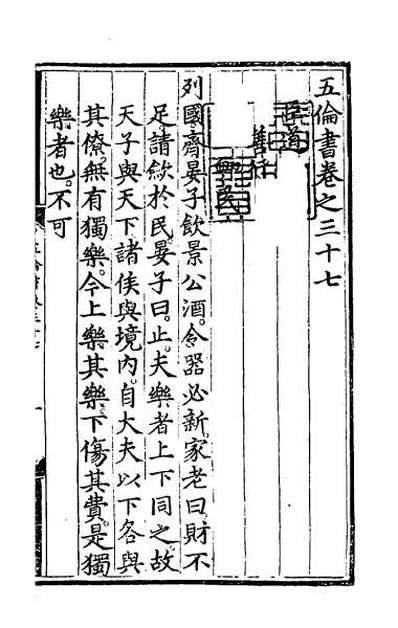 五倫書卷之三十七
臣道
善行
興民
列國齊晏子飲景公酒。令器必新。家老曰。財不
足。請斂於民。晏子曰。止。夫樂者上下同之。故
天子與天下。諸侯與境內。自大夫以下各與
其僚。無有獨樂。今上樂其樂。下傷其費。是獨
樂者也。不可